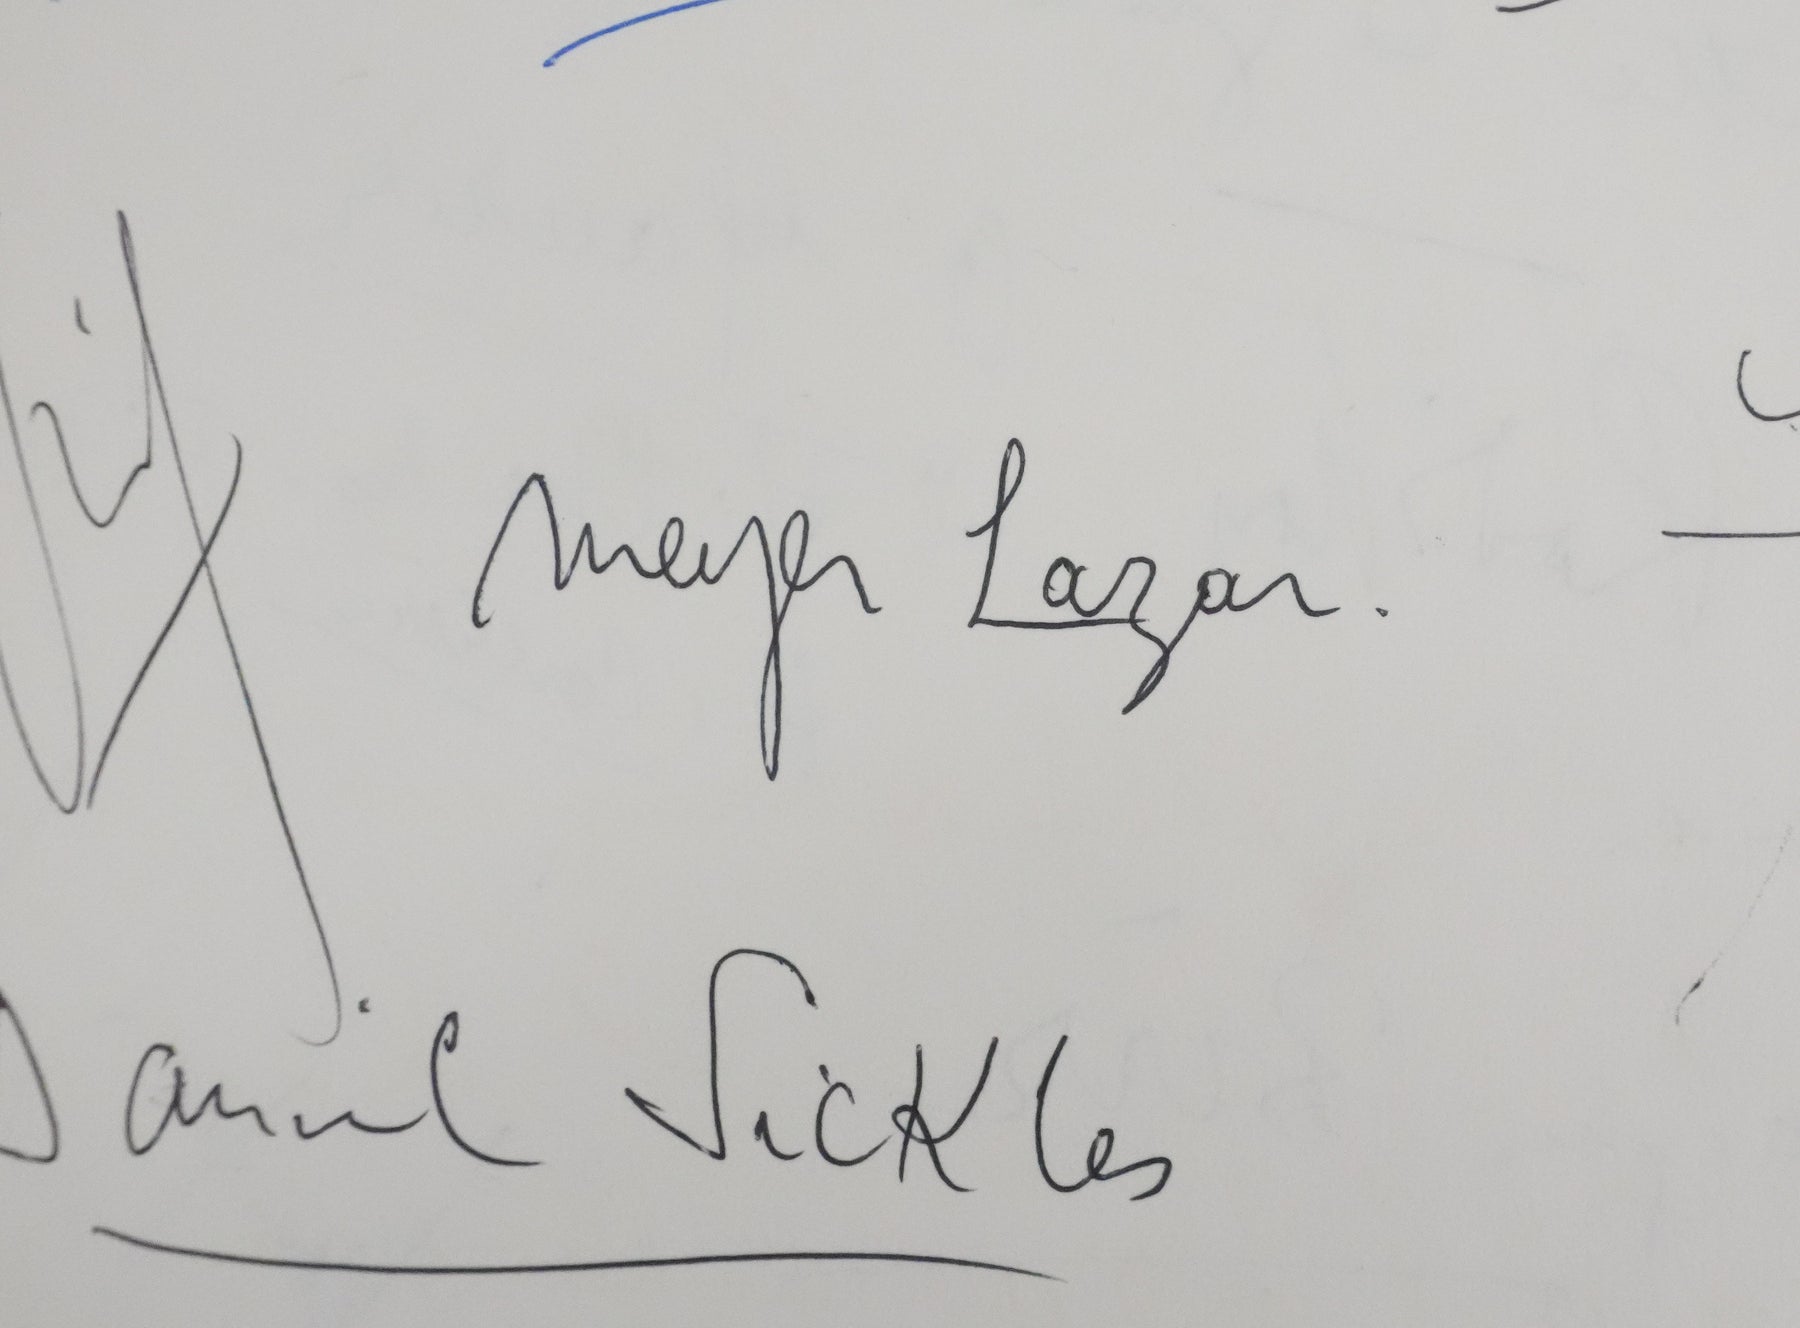 Meyer Lazar.
Daniel Sickles